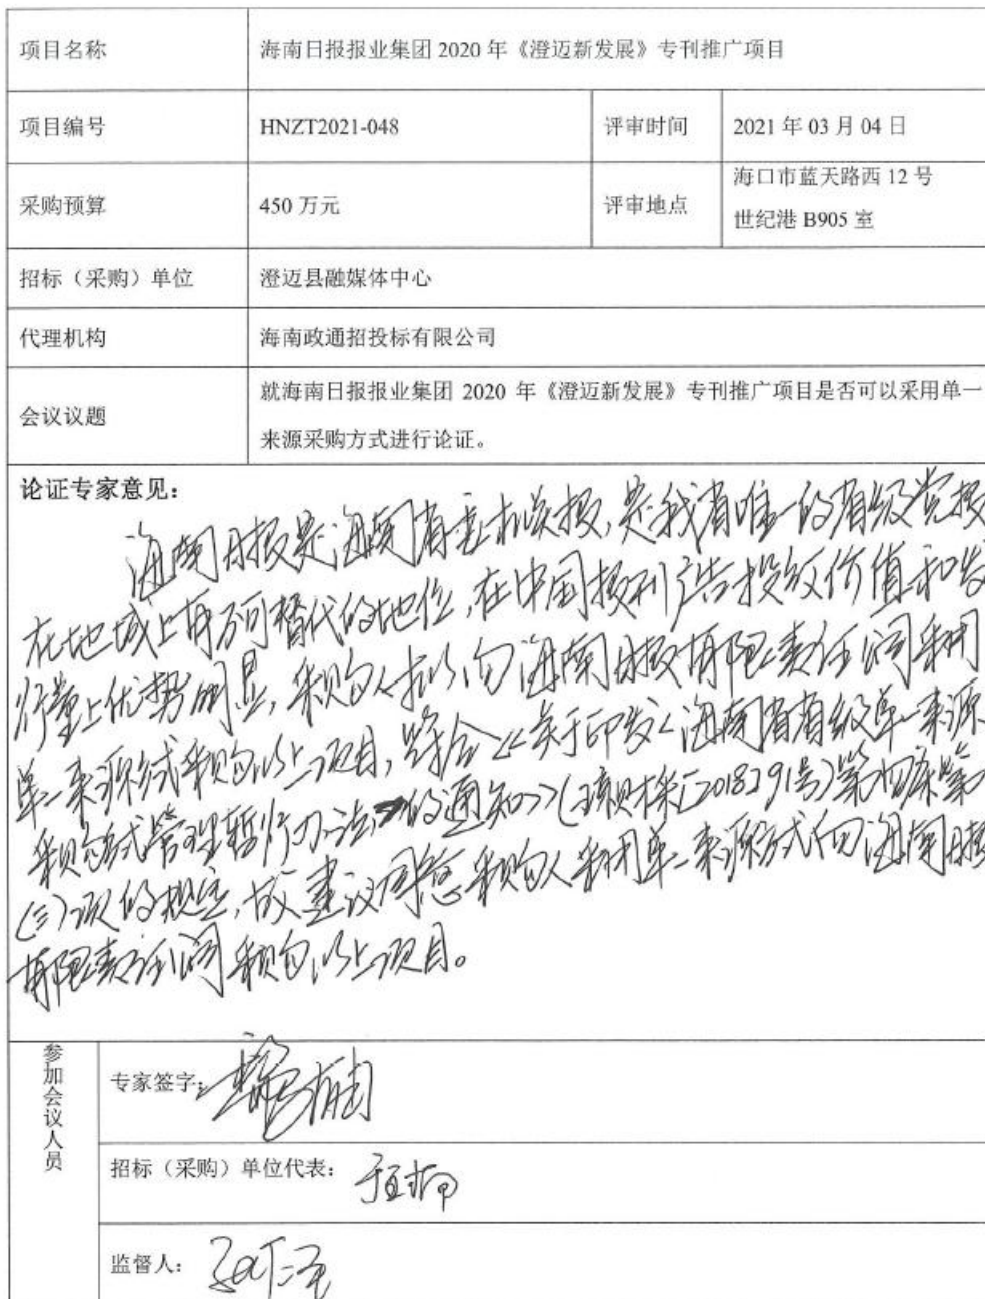 项目名称 海南日报报业集团 2020 年《澄迈新发展》专刊推广项目
项目编号 HNZT2021-048 评审时间 2021 年 03 月 04 日
采购预算 450 万元 评审地点 海口市蓝天路西 12 号
世纪港 B905 室
招标（采购）单位 澄迈县融媒体中心
代理机构 海南政通招投标有限公司
会议议题 就海南日报报业集团 2020 年《澄迈新发展》专刊推广项目是否可以采用单一
来源采购方式进行论证。
论证专家意见：
海南日报是海南省委机关报，是我省唯一的省级党报
在地域上有不可替代的地位，在中国报刊广告投放价值和发
行量上优势明显，采购人拟向海南日报有限责任公司采用
单一来源方式采购以上项目，符合《关于印发<海南省省级单一来源
采购方式管理暂行办法>的通知》(琼财采[2018]91号)第四条第
(三)项的规定，故建议同意采购人采用单一来源方式向海南日报
有限责任公司采购以上项目。
参加会议人员
专家签字：
招标（采购）单位代表：
监督人：